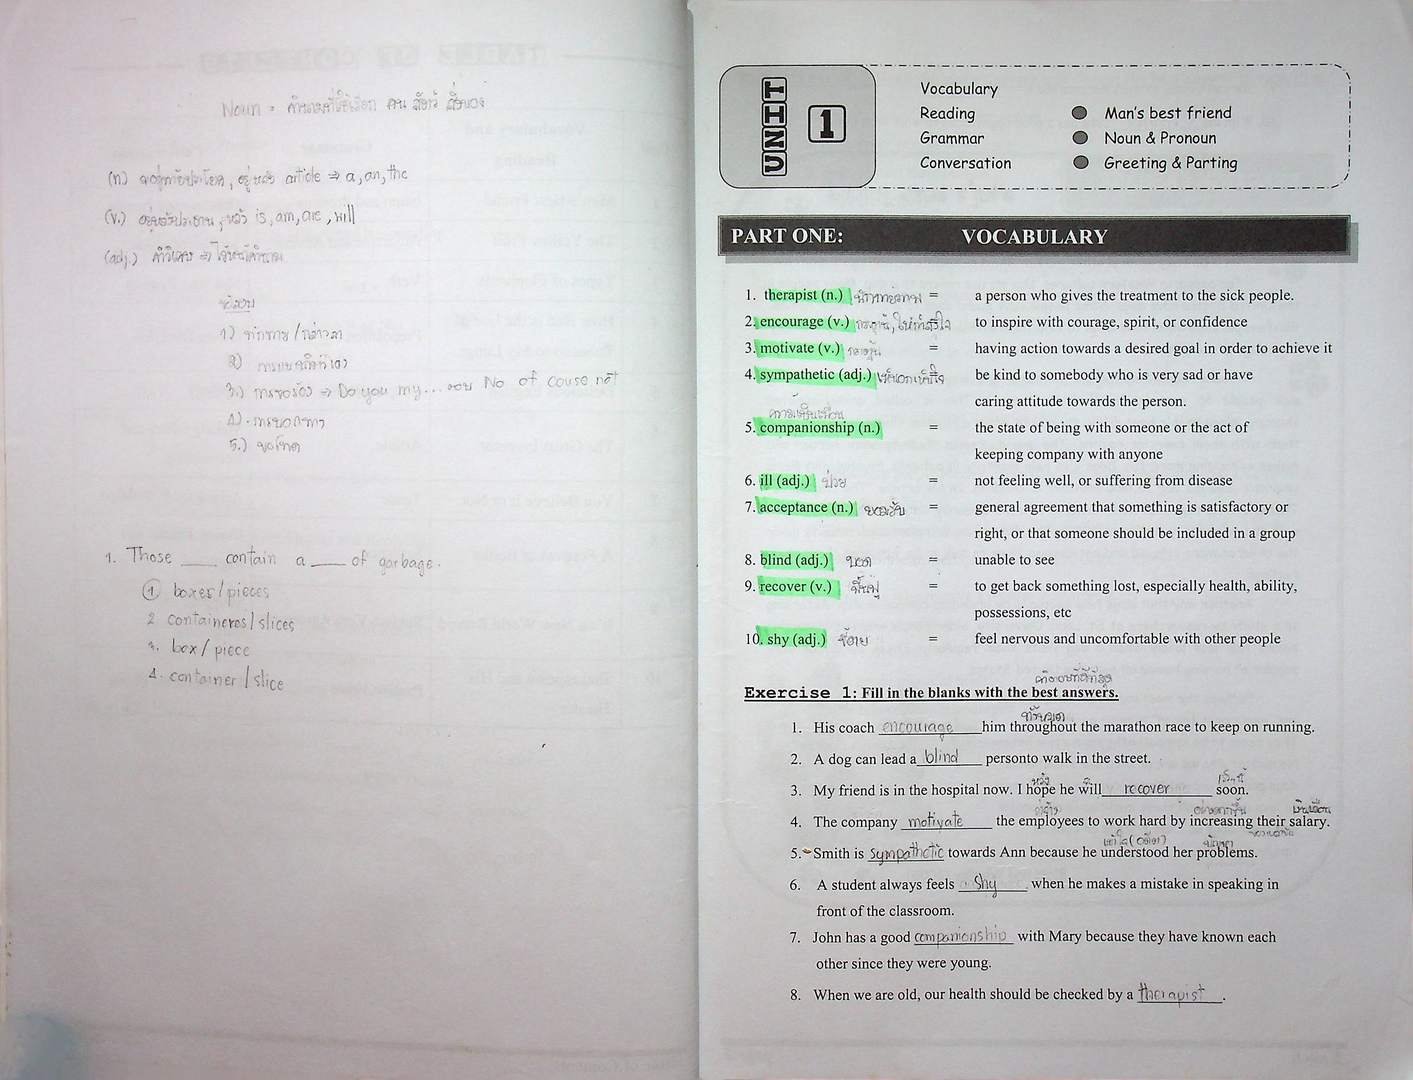 Noun = คำนามที่ใช้เรียก คน สัตว์ สิ่งของ
(n) อยู่ท้ายประโยค, อยู่หลัง article ⇒ a, an, the
(v.) อยู่หลังประธาน, หลัง is, am, are, will
(adj.) คำวิเศษ ⇒ ใช้หน้าคำนาม
ข้อสอบ
1) ทักทาย / กล่าวลา
2)
3.) การขอร้อง ⇒ Do you my... ตอบ No of couse not
4)
5.) ขอโทษ
1. Those ____ contain a ____ of garbage.
① boxes / pieces
2 containeres / slices
3. box / piece
4. container / slice
UNIT 1
Vocabulary
Reading ● Man's best friend
Grammar ● Noun & Pronoun
Conversation ● Greeting & Parting
PART ONE: VOCABULARY
1. therapist (n.) = a person who gives the treatment to the sick people.
2. encourage (v.) กระตุ้น, ให้กำลังใจ = to inspire with courage, spirit, or confidence
3. motivate (v.) กระตุ้น = having action towards a desired goal in order to achieve it
4. sympathetic (adj.) เห็นอกเห็นใจ = be kind to somebody who is very sad or have
caring attitude towards the person.
การเป็นเพื่อน
5. companionship (n.) = the state of being with someone or the act of
keeping company with anyone
6. ill (adj.) ป่วย = not feeling well, or suffering from disease
7. acceptance (n.) ยอมรับ = general agreement that something is satisfactory or
right, or that someone should be included in a group
8. blind (adj.) บอด = unable to see
9. recover (v.) ฟื้นฟู = to get back something lost, especially health, ability,
possessions, etc
10. shy (adj.) ขี้อาย = feel nervous and uncomfortable with other people
คำตอบที่ดีที่สุด
Exercise 1: Fill in the blanks with the best answers.
ทั้งหมด
1. His coach encourage him throughout the marathon race to keep on running.
2. A dog can lead a blind personto walk in the street.
หวัง เร็วๆนี้
3. My friend is in the hospital now. I hope he will recover soon.
เงินเดือน
4. The company motivate the employees to work hard by increasing their salary.
เข้าใจ (อดีต) ปัญหา
5. Smith is sympathetic towards Ann because he understood her problems.
6. A student always feels shy when he makes a mistake in speaking in
front of the classroom.
7. John has a good companionship with Mary because they have known each
other since they were young.
8. When we are old, our health should be checked by a therapist.